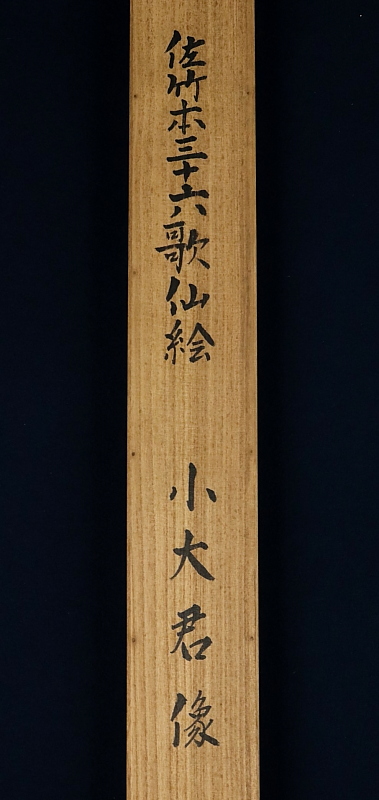 佐竹本三十六歌仙絵 小大君像